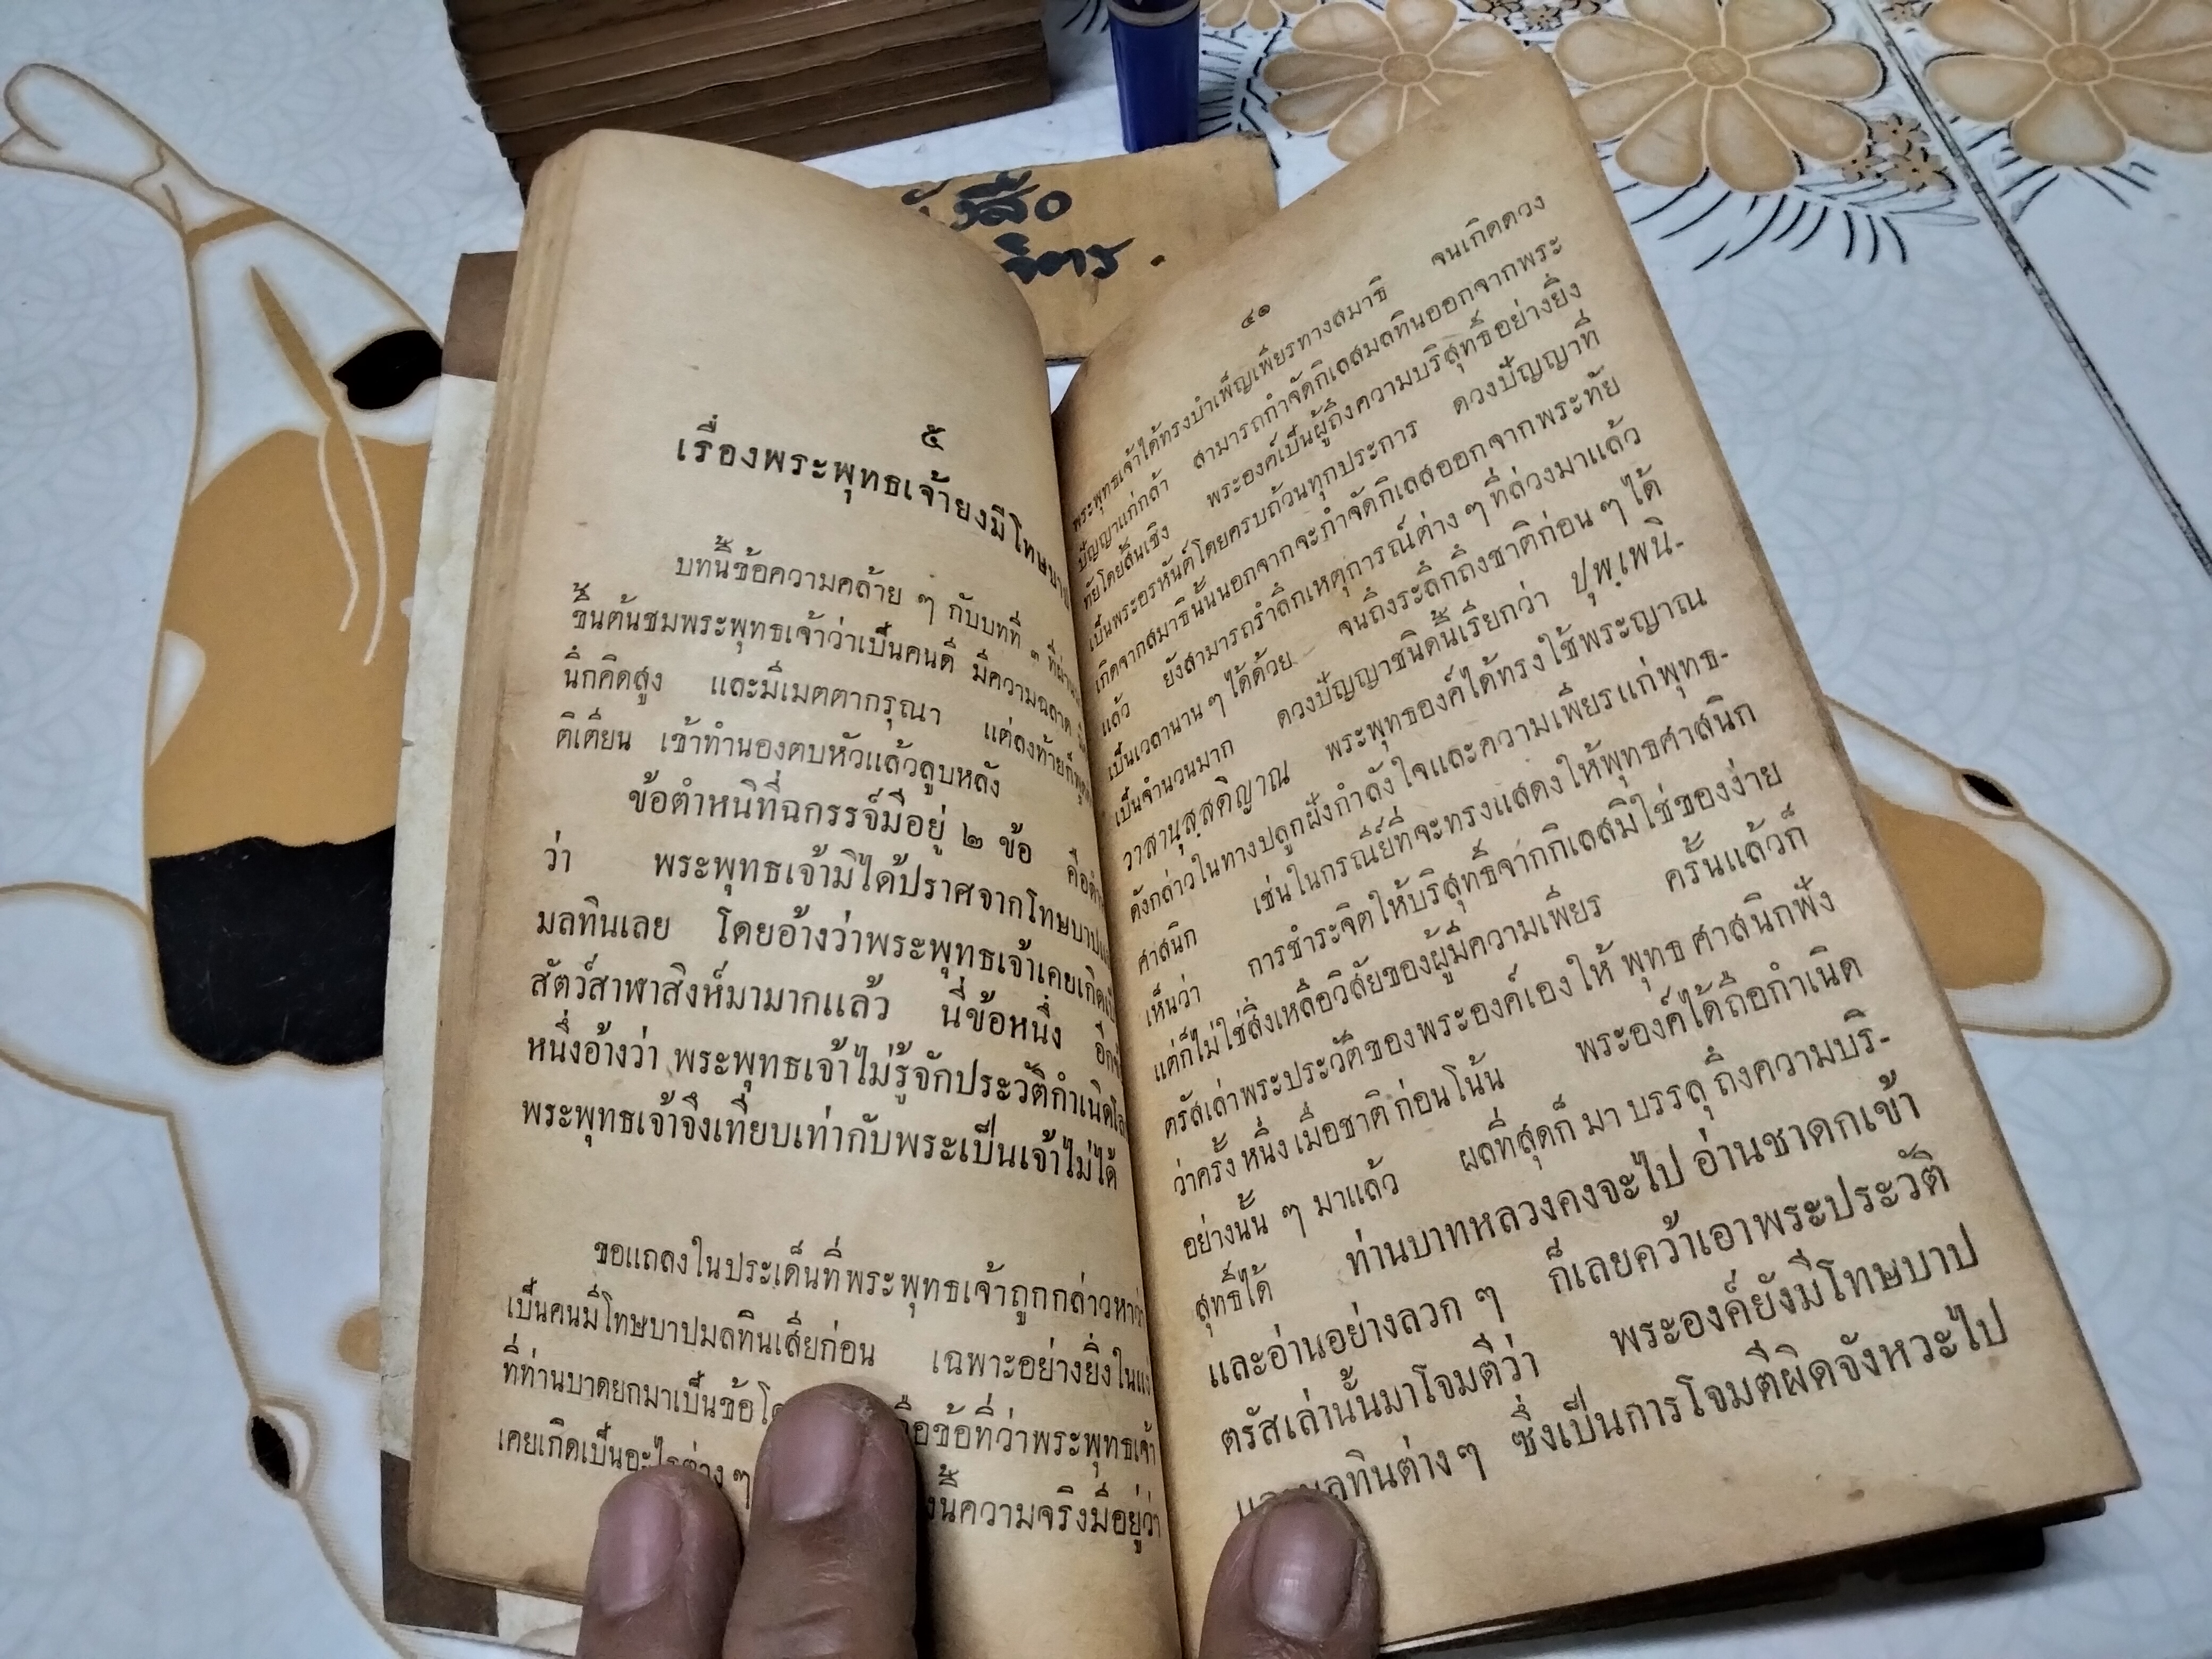 หนังสือ
๕
เรื่องพระพุทธเจ้ายังมีโทษบาป
บทนี้ข้อความคล้าย ๆ กับบทที่ ๓ ที่ผ่านมา
ขึ้นต้นชมพระพุทธเจ้าว่าเป็นคนดี มีความฉลาด
นึกคิดสูง และมีเมตตากรุณา แต่ลงท้ายก็
ติเตียน เข้าทำนองตบหัวแล้วลูบหลัง
ข้อตำหนิที่ฉกรรจ์มีอยู่ ๒ ข้อ คือ
ว่า พระพุทธเจ้ามิได้ปราศจากโทษบาป
มลทินเลย โดยอ้างว่าพระพุทธเจ้าเคยเกิด
สัตว์สาฬาสิงห์มามากแล้ว นี่ข้อหนึ่ง
หนึ่งอ้างว่า พระพุทธเจ้าไม่รู้จักประวัติกำเนิด
พระพุทธเจ้าจึงเทียบเท่ากับพระเป็นเจ้าไม่ได้
ขอแถลงในประเด็นที่พระพุทธเจ้าถูกกล่าวหาว่า
เป็นคนมีโทษบาปมลทินเสียก่อน เฉพาะอย่างยิ่งใน
ที่ท่านบาดยกมาเป็นข้อ ข้อที่ว่าพระพุทธเจ้า
เคยเกิดเป็นอะไรต่าง ๆ ความจริงมีอยู่ว่า
๔๑
พระพุทธเจ้าได้ทรงบำเพ็ญเพียรทางสมาธิ จนเกิดดวง
ปัญญาแก่กล้า สามารถกำจัดกิเลสมลทินออกจากพระ
ทัยโดยสิ้นเชิง พระองค์เป็นผู้ถึงความบริสุทธิ์อย่างยิ่ง
เป็นพระอรหันต์โดยครบถ้วนทุกประการ ดวงปัญญาที่
เกิดจากสมาธินั้นนอกจากจะกำจัดกิเลสออกจากพระทัย
แล้ว ยังสามารถรำลึกเหตุการณ์ต่าง ๆ ที่ล่วงมาแล้ว
เป็นเวลานาน ๆ ได้ด้วย จนถึงระลึกถึงชาติก่อน ๆ ได้
เป็นจำนวนมาก ดวงปัญญาชนิดนี้เรียกว่า ปุพฺเพนิ-
วาสานุสฺสติญาณ พระพุทธองค์ได้ทรงใช้พระญาณ
ดังกล่าวในทางปลูกฝังกำลังใจและความเพียรแก่พุทธ-
ศาสนิก เช่นในกรณีย์ที่จะทรงแสดงให้พุทธศาสนิก
เห็นว่า การชำระจิตให้บริสุทธิ์จากกิเลสมิใช่ของง่าย
แต่ก็ไม่ใช่สิ่งเหลือวิสัยของผู้มีความเพียร ครั้นแล้วก็
ตรัสเล่าพระประวัติของพระองค์เองให้ พุทธ ศาสนิกฟัง
ว่าครั้ง หนึ่ง เมื่อชาติ ก่อนโน้น พระองค์ได้ถือกำเนิด
อย่างนั้น ๆ มาแล้ว ผลที่สุดก็ มา บรรลุ ถึงความบริ-
สุทธิ์ได้ ท่านบาทหลวงคงจะไป อ่านชาดกเข้า
และอ่านอย่างลวก ๆ ก็เลยคว้าเอาพระประวัติ
ตรัสเล่านั้นมาโจมตีว่า พระองค์ยังมีโทษบาป
และมลทินต่าง ๆ ซึ่งเป็นการโจมตีผิดจังหวะไป